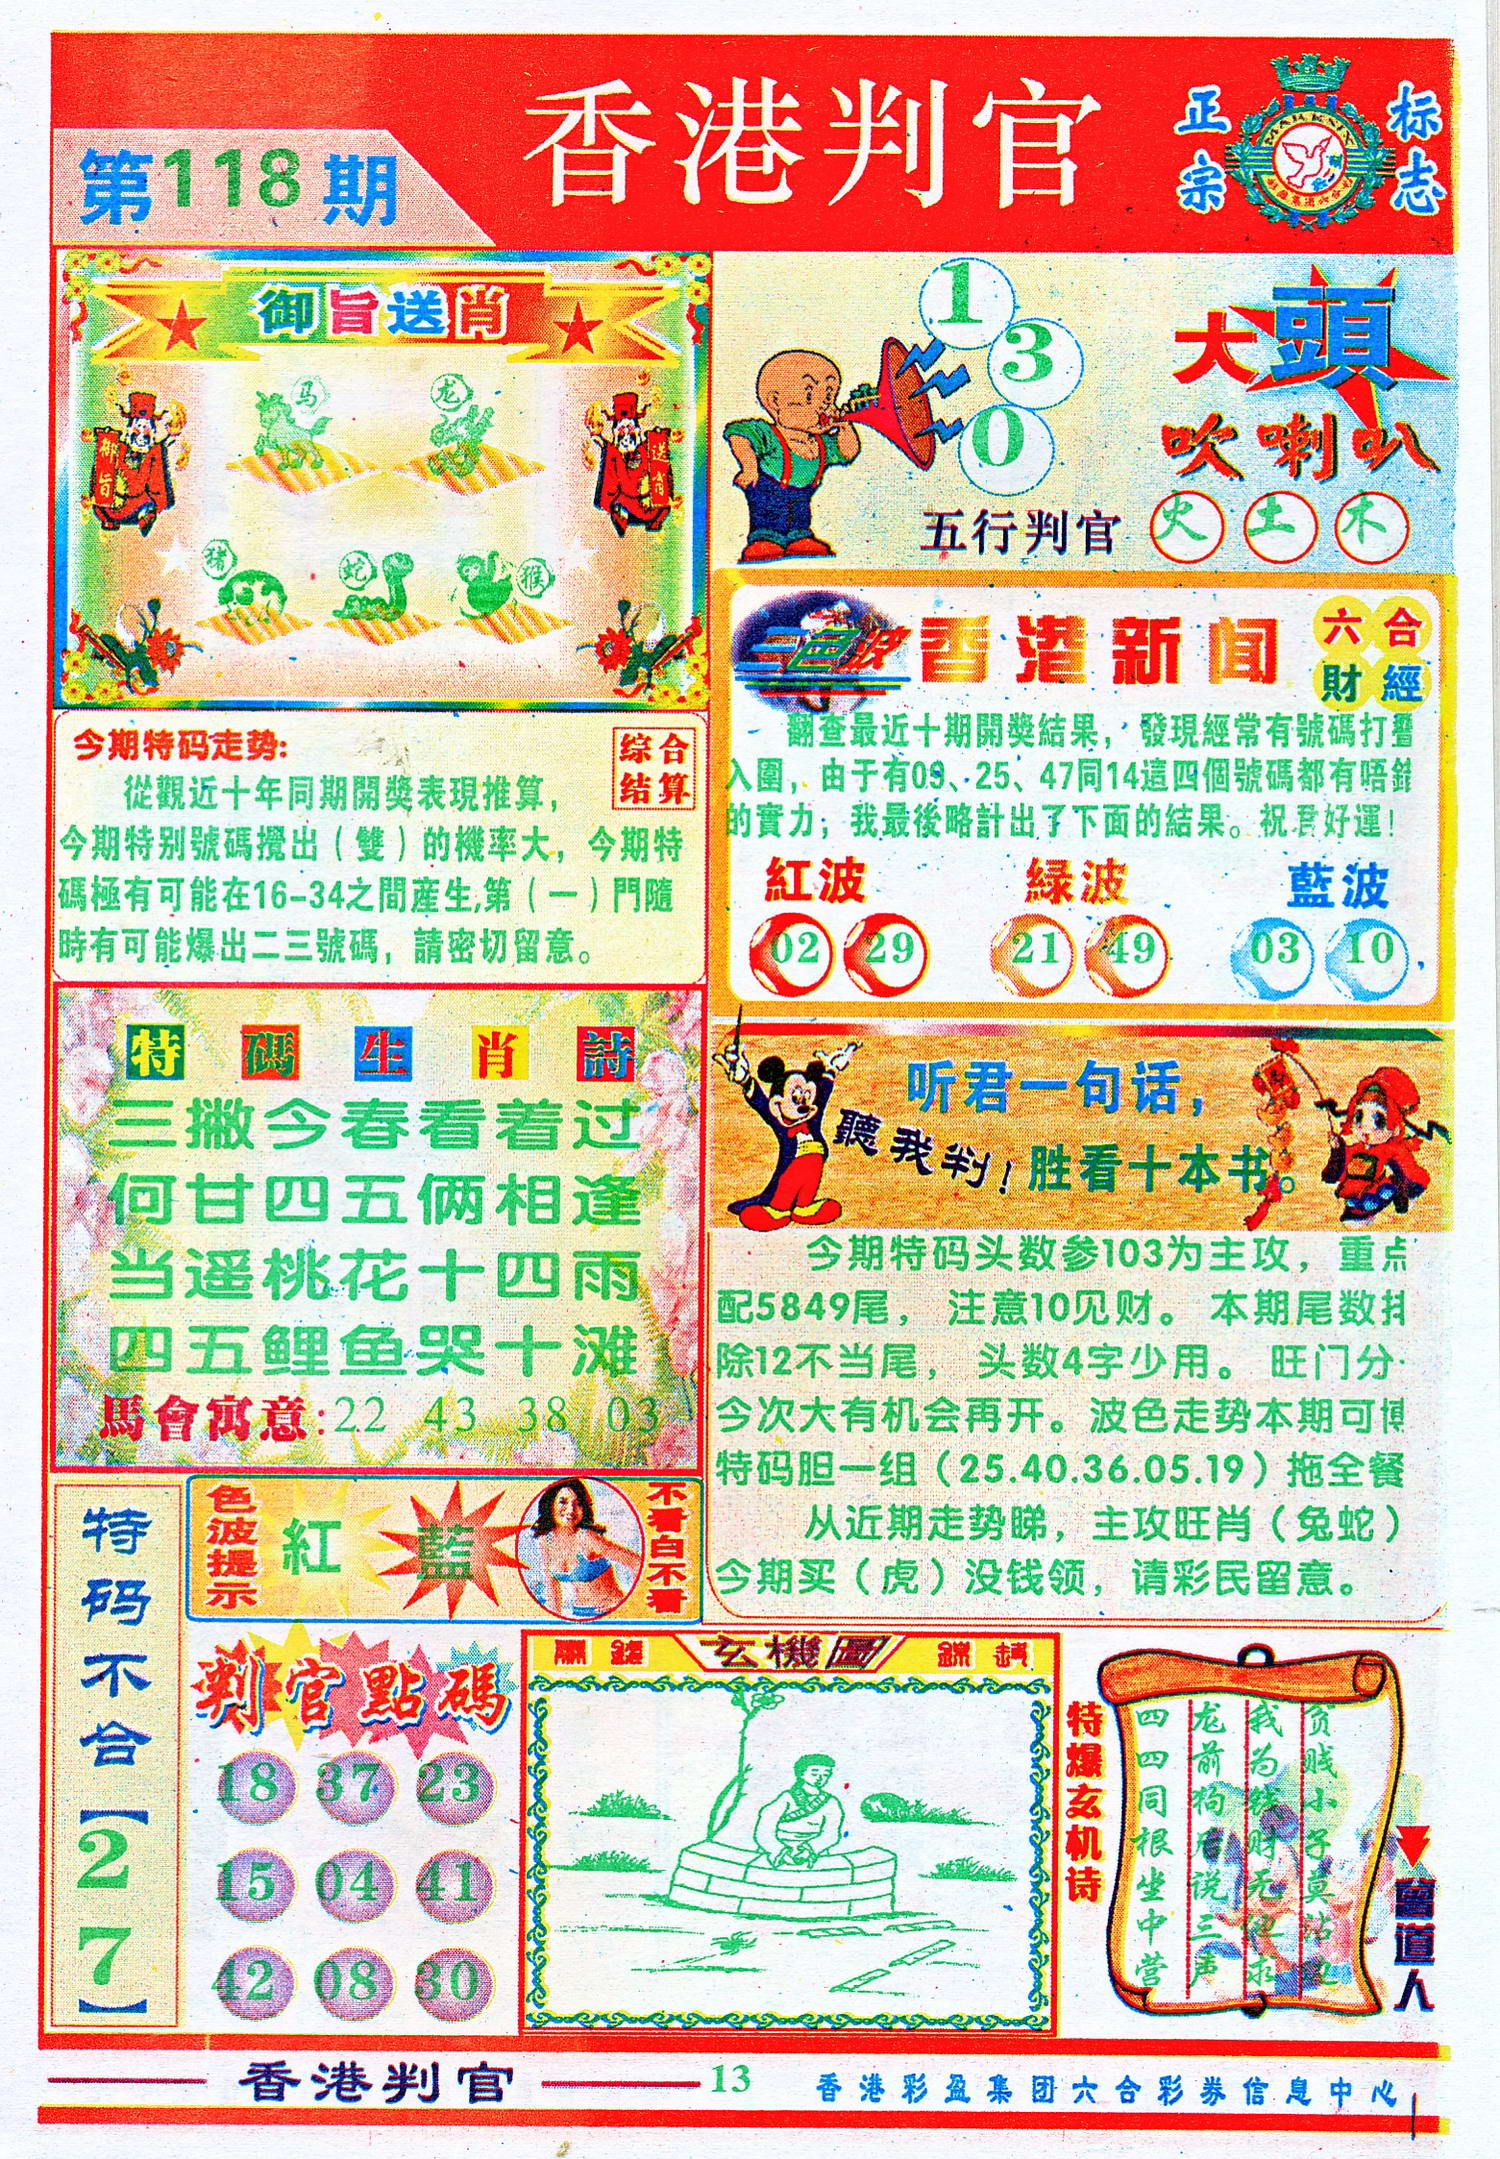 第118期
香港判官
正宗
标志
御旨送肖
马
龙
御旨
送肖
猪
蛇
猴
1
3
0
大頭
吹喇叭
五行判官 火 土 木
今期特码走势:
综合
结算
從觀近十年同期開獎表現推算，
今期特别號碼攪出（雙）的機率大，今期特
碼極有可能在16-34之間産生,第（一）門隨
時有可能爆出二三號碼，請密切留意。
三色波
香港新闻
六合
財經
翻查最近十期開獎結果，發現經常有號碼打
入圍，由于有09、25、47同14這四個號碼都有唔錯
的實力，我最後略計出了下面的結果。祝君好運！
紅波 緑波 藍波
02 29 21 49 03 10
特碼生肖詩
三撇今春看着过
何甘四五俩相逢
当遥桃花十四雨
四五鲤鱼哭十滩
馬會寓意:22 43 38 03
聽我判!
听君一句话，
胜看十本书。
今期特码头数参103为主攻，重点
配5849尾，注意10见财。本期尾数
除12不当尾，头数4字少用。旺门分
今次大有机会再开。波色走势本期可博
特码胆一组（25.40.36.05.19）拖全餐
从近期走势睇，主攻旺肖（兔蛇）
今期买（虎）没钱领，请彩民留意。
特码不合【27】
色波提示
紅 藍
不看白不看
判官點碼
18 37 23
15 04 41
42 08 30
玄機圖
特爆玄机诗
贫贱小子莫沾
我为钱财无
龙前狗后说三声
四四同根坐中营
曾道人
香港判官
13
香港彩盈集团六合彩券信息中心